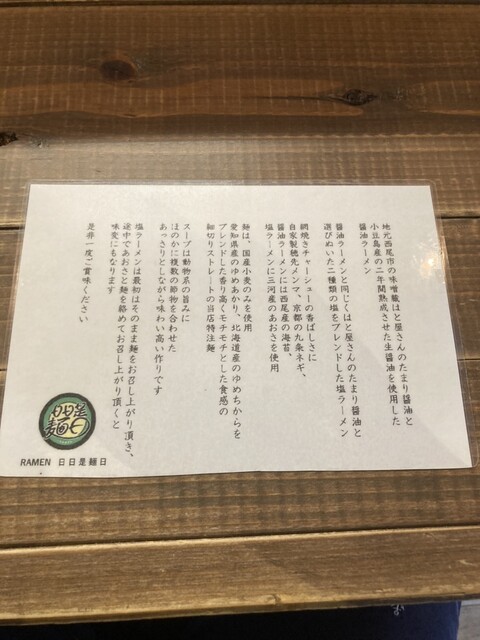 地元西尾市の味噌蔵はと屋さんのたまり醤油と
小豆島産の二年間熟成させた生醤油を使用した
醤油ラーメン
醤油ラーメンと同じくはと屋さんのたまり醤油と
選びぬいた二種類の塩をブレンドした塩ラーメン
網焼きチャーシューの香ばしさに
自家製穂先メンマ、京都の九条ネギ、
醤油ラーメンには西尾産の海苔、
塩ラーメンに三河産のあおさを使用
麺は、国産小麦のみを使用
愛知県産のゆめあかり、北海道産のゆめちからを
ブレンドした香り高くモチモチとした食感の
細切りストレートの当店特注麺
スープは動物系の旨みに
ほのかに複数の節物を合わせた
あっさりとしながら味わい高い作りです
塩ラーメンは最初はそのまま麺をお召し上がり頂き、
途中であおさと麺を絡めてお召し上がり頂くと
味変にもなります
是非一度ご賞味ください
日日是
麺日
RAMEN 日日是麺日